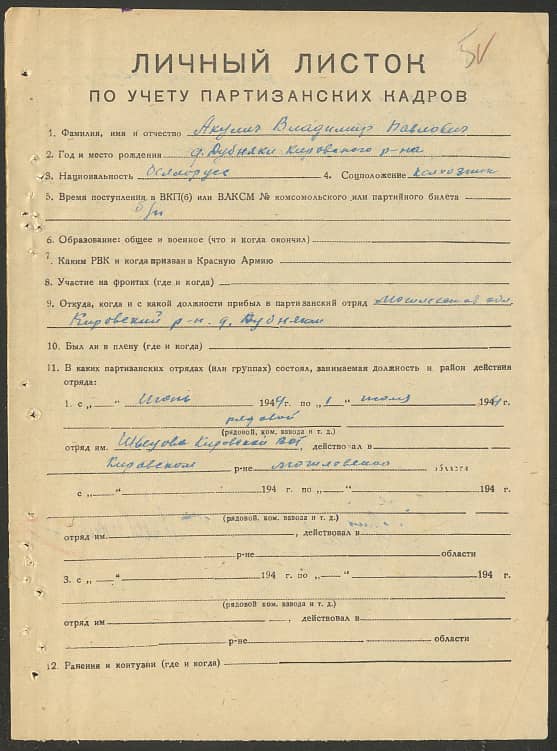 5
ЛИЧНЫЙ ЛИСТОК
ПО УЧЕТУ ПАРТИЗАНСКИХ КАДРОВ
1. Фамилия, имя и отчество Акулич Владимир Павлович
2. Год и место рождения д. Дубняки Кировского р-на
3. Национальность Белорусс 4. Соцположение Колхозник
5. Время поступления в ВКП(б) или ВЛКСМ № комсомольского или партийного билета
б/п
6. Образование: общее и военное (что и когда окончил)
7. Каким РВК и когда призван в Красную Армию
8. Участие на фронтах (где и когда)
9. Откуда, когда и с какой должности прибыл в партизанский отряд Могилевская обл.
Кировский р-н. д. Дубняки
10. Был ли в плену (где и когда)
11. В каких партизанских отрядах (или группах) состоял, занимаемая должность и район действия
отряда:
1. с „ “ Июнь 1944 г. по „1“ июля 1944 г.
рядовой
(рядовой, ком. взвода и т. д.)
отряд им. Швецова Кировской , действовал в
Кировском р-не Могилевской области
с „ “ 194 г. по „ “ 194 г.
(рядовой, ком. взвода и т. д.)
отряд им. , действовал в
р-не области
3. с „ “ 194 г. по „ “ 194 г.
(рядовой, ком. взвода и т. д.)
отряд им , действовал в
р-не области
12. Ранения и контузии (где и когда)